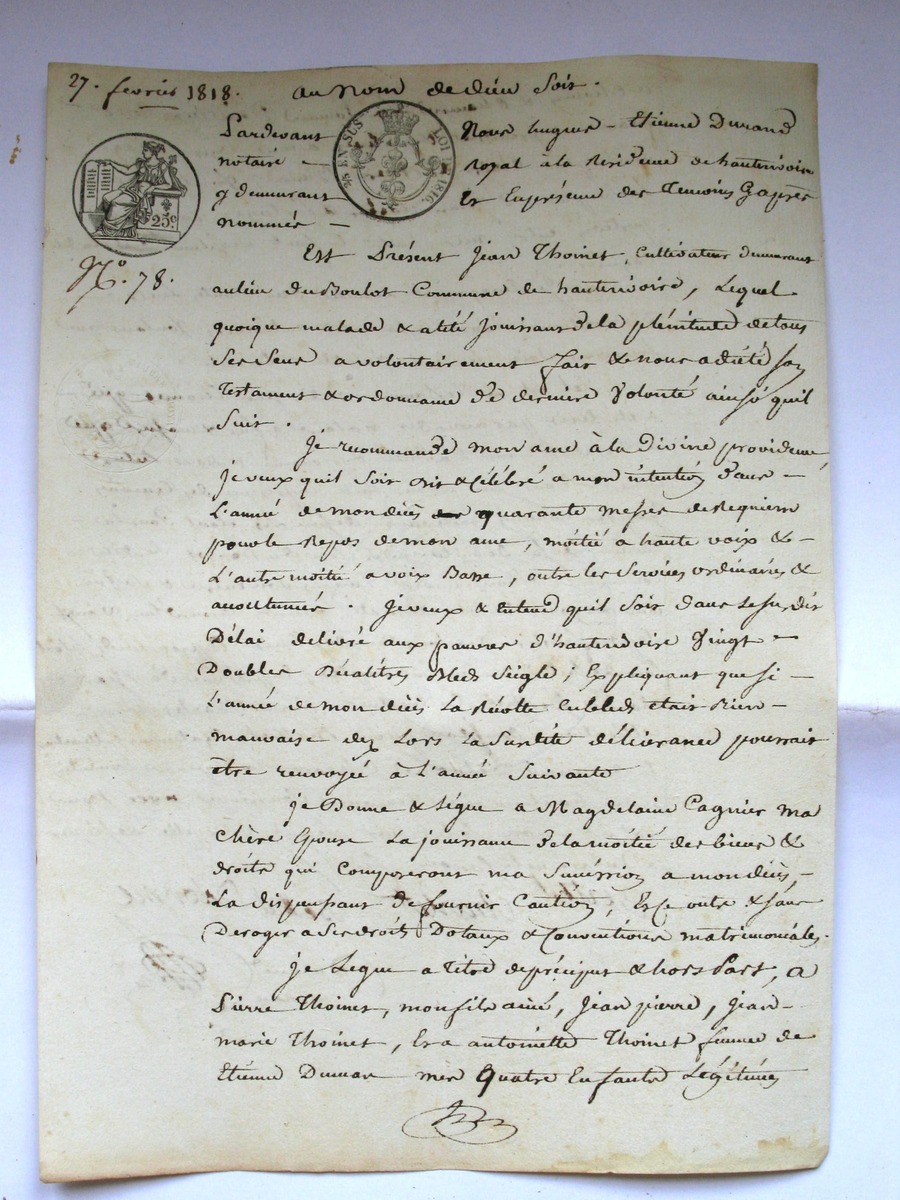 27. fevrier 1818. au nom de dieu soit.
Pardevant Nous hugues - Etienne Durand
EN SUS LOI DE 1816
notaire - Royal à la Résidence de hauterivoire
y demeurant Et En présence des Temoins Cy après
nommés -
25c.
No. 78.
Est Présent Jean Thoinet, Cultivateur demeurant
au lieu du Boulot Commune de hauterivoire, Lequel
quoique malade & alité jouissant de la plénitude de tous
Ses Sens a volontairement fait & nous a dicté son
Testament & ordonnance de derniere Volonté ainsy quil
Suit.
Je recommande mon ame à la divine providence
je veux quil soit dit & Célébré a mon intention dans -
L'année de mon décès quarante messes de Requiem
pour le Repos de mon ame, moitié a haute voix & -
L'autre moitié a voix Basse, outre les Services ordinaires &
accoutumés. Je veux & Entend quil soit dans le susdit
Délai delivré aux pauvres d'hauterivoire Vingt -
Doubles Décalitres Bled Seigle; Expliquant que si -
L'année de mon décès La Récolte en bleds etait Bien -
mauvaise dez Lors La Susdite délivrance pourrait
être renvoyée à L'année Suivante
je Donne & Légue a Magdelaine Cagnier ma
chère Epouse La jouissance de la moitié des biens &
droits qui Composeront ma Succession a mon décès, -
La dispensant de fournir Caution, Et Ce outre & sans
Deroger a Ses droits Dotaux & Conventions matrimoniales.
je Legue a titre de préciput & hors Part, a
Pierre Thoinet, mon fils ainé, Jean pierre, Jean -
marie Thoinet, Et a antoinette Thoinet femme de
Etienne mes Quatre Enfants Légitimes